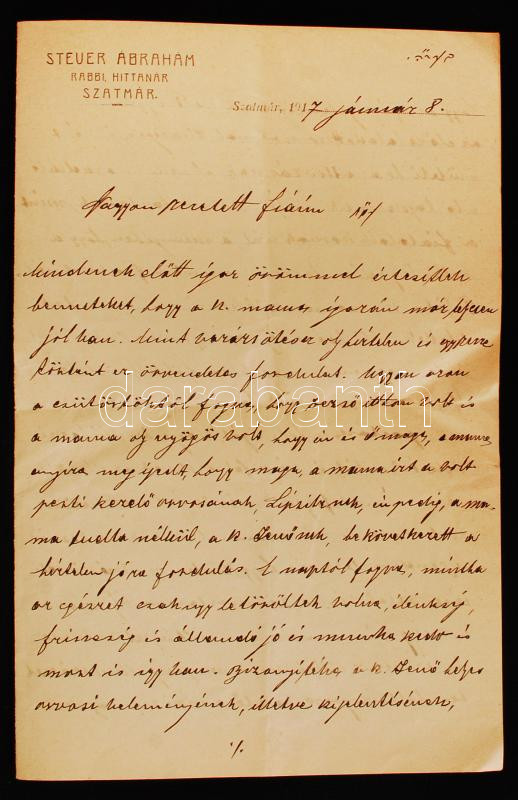 STEUER ÁBRAHÁM
RABBI, HITTANÁR
SZATMÁR.
Szatmár, 1917 január 8.
Nagyon szeretett fiaim
Mindenek előtt igaz örömmel értesítlek
benneteket, hogy a k. mama igazán már teljesen
jól van. Mint varázsütésre oly hirtelen és egyszerre
történt ez örvendetes fordulat. Ugyan azon
a csütörtöktől fogva, hogy Dezső itthon volt és
a mama oly nyögős volt, hogy én és Ő maga, a mama
annyira megijedt, hogy maga, a mama írt a volt
pesti kezelő orvosának, én pedig, a ma-
ma tudta nélkül, a k. Jenőnek, bekövetkezett a
hirtelen jóra fordulás. E naptól fogva, mintha
az egészet csak úgy letörölték volna, élénkség,
frisseség és állandó jó és munka kedv és
most is így van. a k. Jenő
orvosi véleményének, illetve kijelentésének,
darabanth